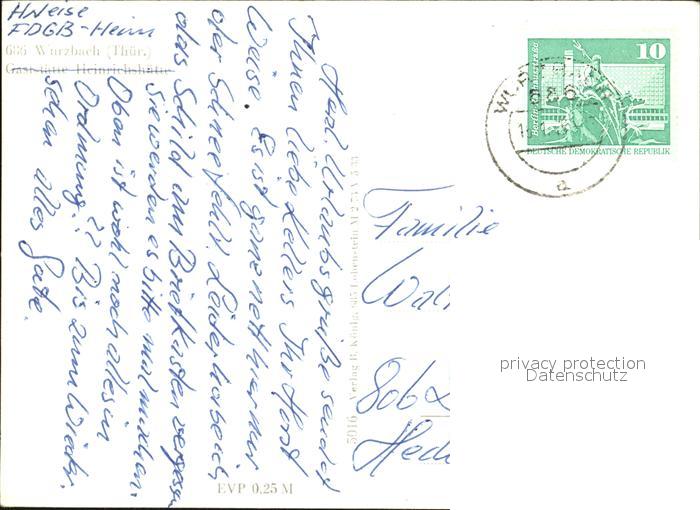 H. Weise
FDGB-Heim
686 Wurzbach (Thür.)
Gaststätte Heinrichshütte
Herzl. Urlaubsgrüße sendet
Ihnen liebe Kellers Ihr Horst
Weise. Es ist ganz nett hier nur
der Schnee fehlt. Leider habe ich
das Schild am Briefkasten vergessen
Sie werden es bitte mal machen.
Oben ist wohl noch alles in
Ordnung?? Bis zum Wieder-
sehen alles Gute.
5016 Verlag B. König, 685 Lobenstein M
EVP 0,25 M
10
Berlin
DEUTSCHE DEMOKRATISCHE REPUBLIK
WURZBACH
686
a
Familie
806
privacy protection
Datenschutz